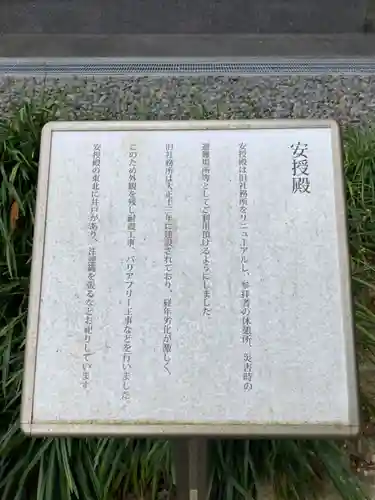 安授殿
安授殿は旧社務所をリニューアルし、参拝者の休憩所、災害時の
避難場所等としてご利用頂けるようにしました。
旧社務所は大正十三年に建設されており、経年劣化が激しく、
このため外観を残し耐震工事、バリアフリー工事などを行いました。
安授殿の東北に井戸があり、注連縄を張るなどお祀りしています。